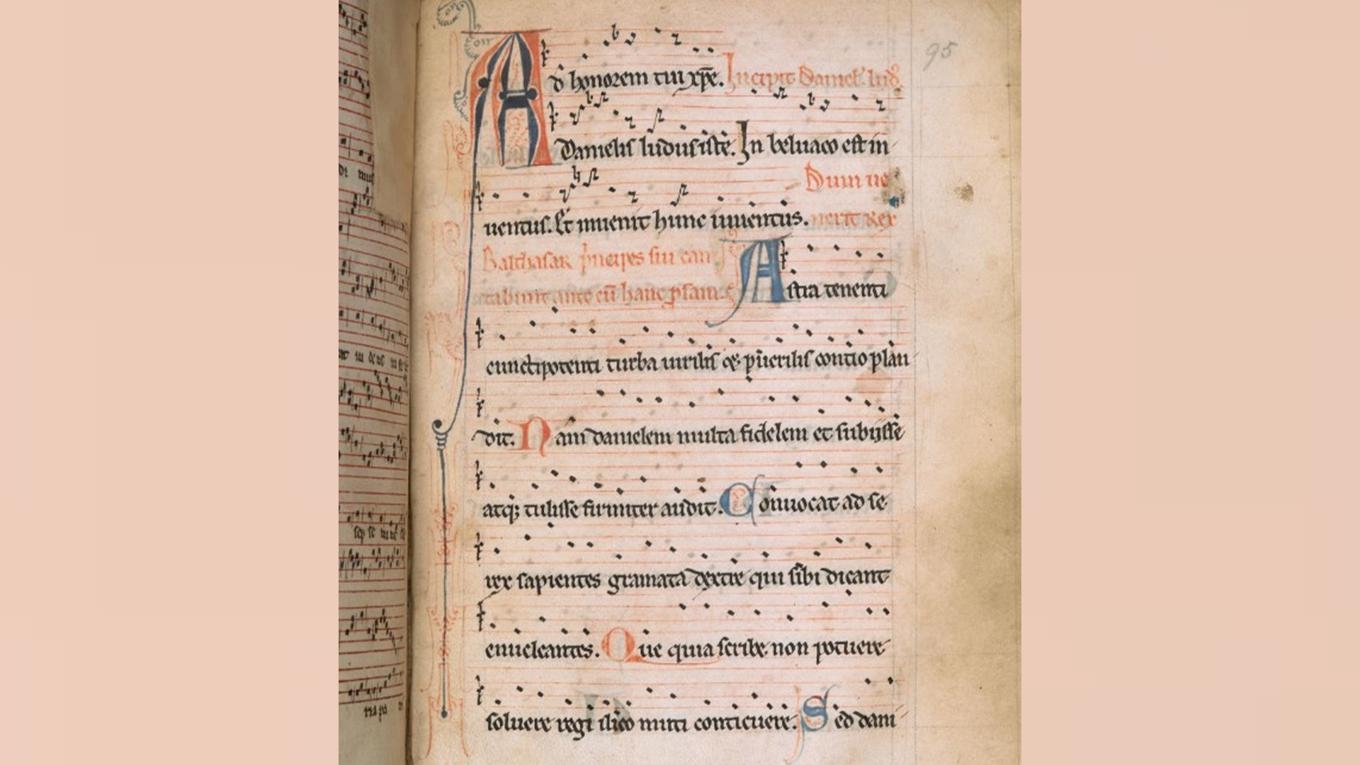 95
Ad honorem tui xp̄e. Incipit Daniel' lud
Danielis ludus iste. In beluaco est in
Dum ue
uentus. Et inuenit hunc iuuentus. nerit Rex
Balthasar p̄ncipes sui can
tabunt ante eū hanc psam
Astra tenenti
cunctipotenti turba uirilis et puerilis contio plau
dit. Nam danielem multa fidelem et subiisse
atq; tulisse firmiter audit. Conuocat ad se
rex sapientes gramata dextre qui sibi dicant
enucleantes. Que quia scribe non potuere
soluere regi ilico muti conticuere. Sed dani